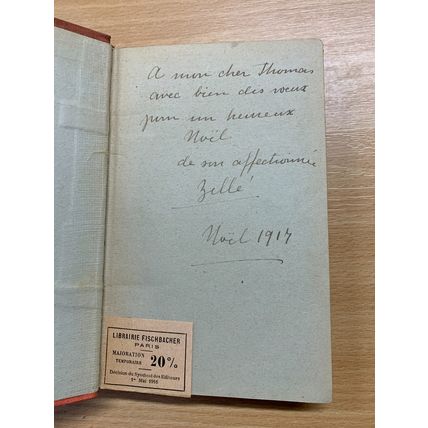 A mon cher Thomas
avec bien des vœux
pour un heureux
Noël
de son affectionnée
Noël 1917
LIBRAIRIE FISCHBACHER
PARIS
MAJORATION
TEMPORAIRE 20%
Décision du Syndicat des Editeurs
1er Mai 1916